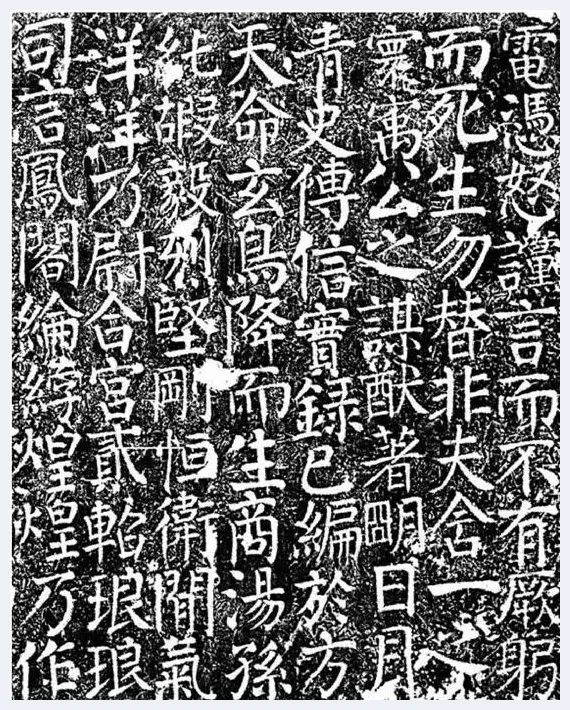 電憑怒謹言而不有厥躬
而死生勿替非夫含一
寰寓公之謀猷著朙日月
青史傳信實録已編於方
天命玄鳥降而生商湯孫
純嘏毅烈堅剛恒衛間氣
洋洋乃尉合宮貳軺琅琅
司言鳳閣綸綍煌煌乃作